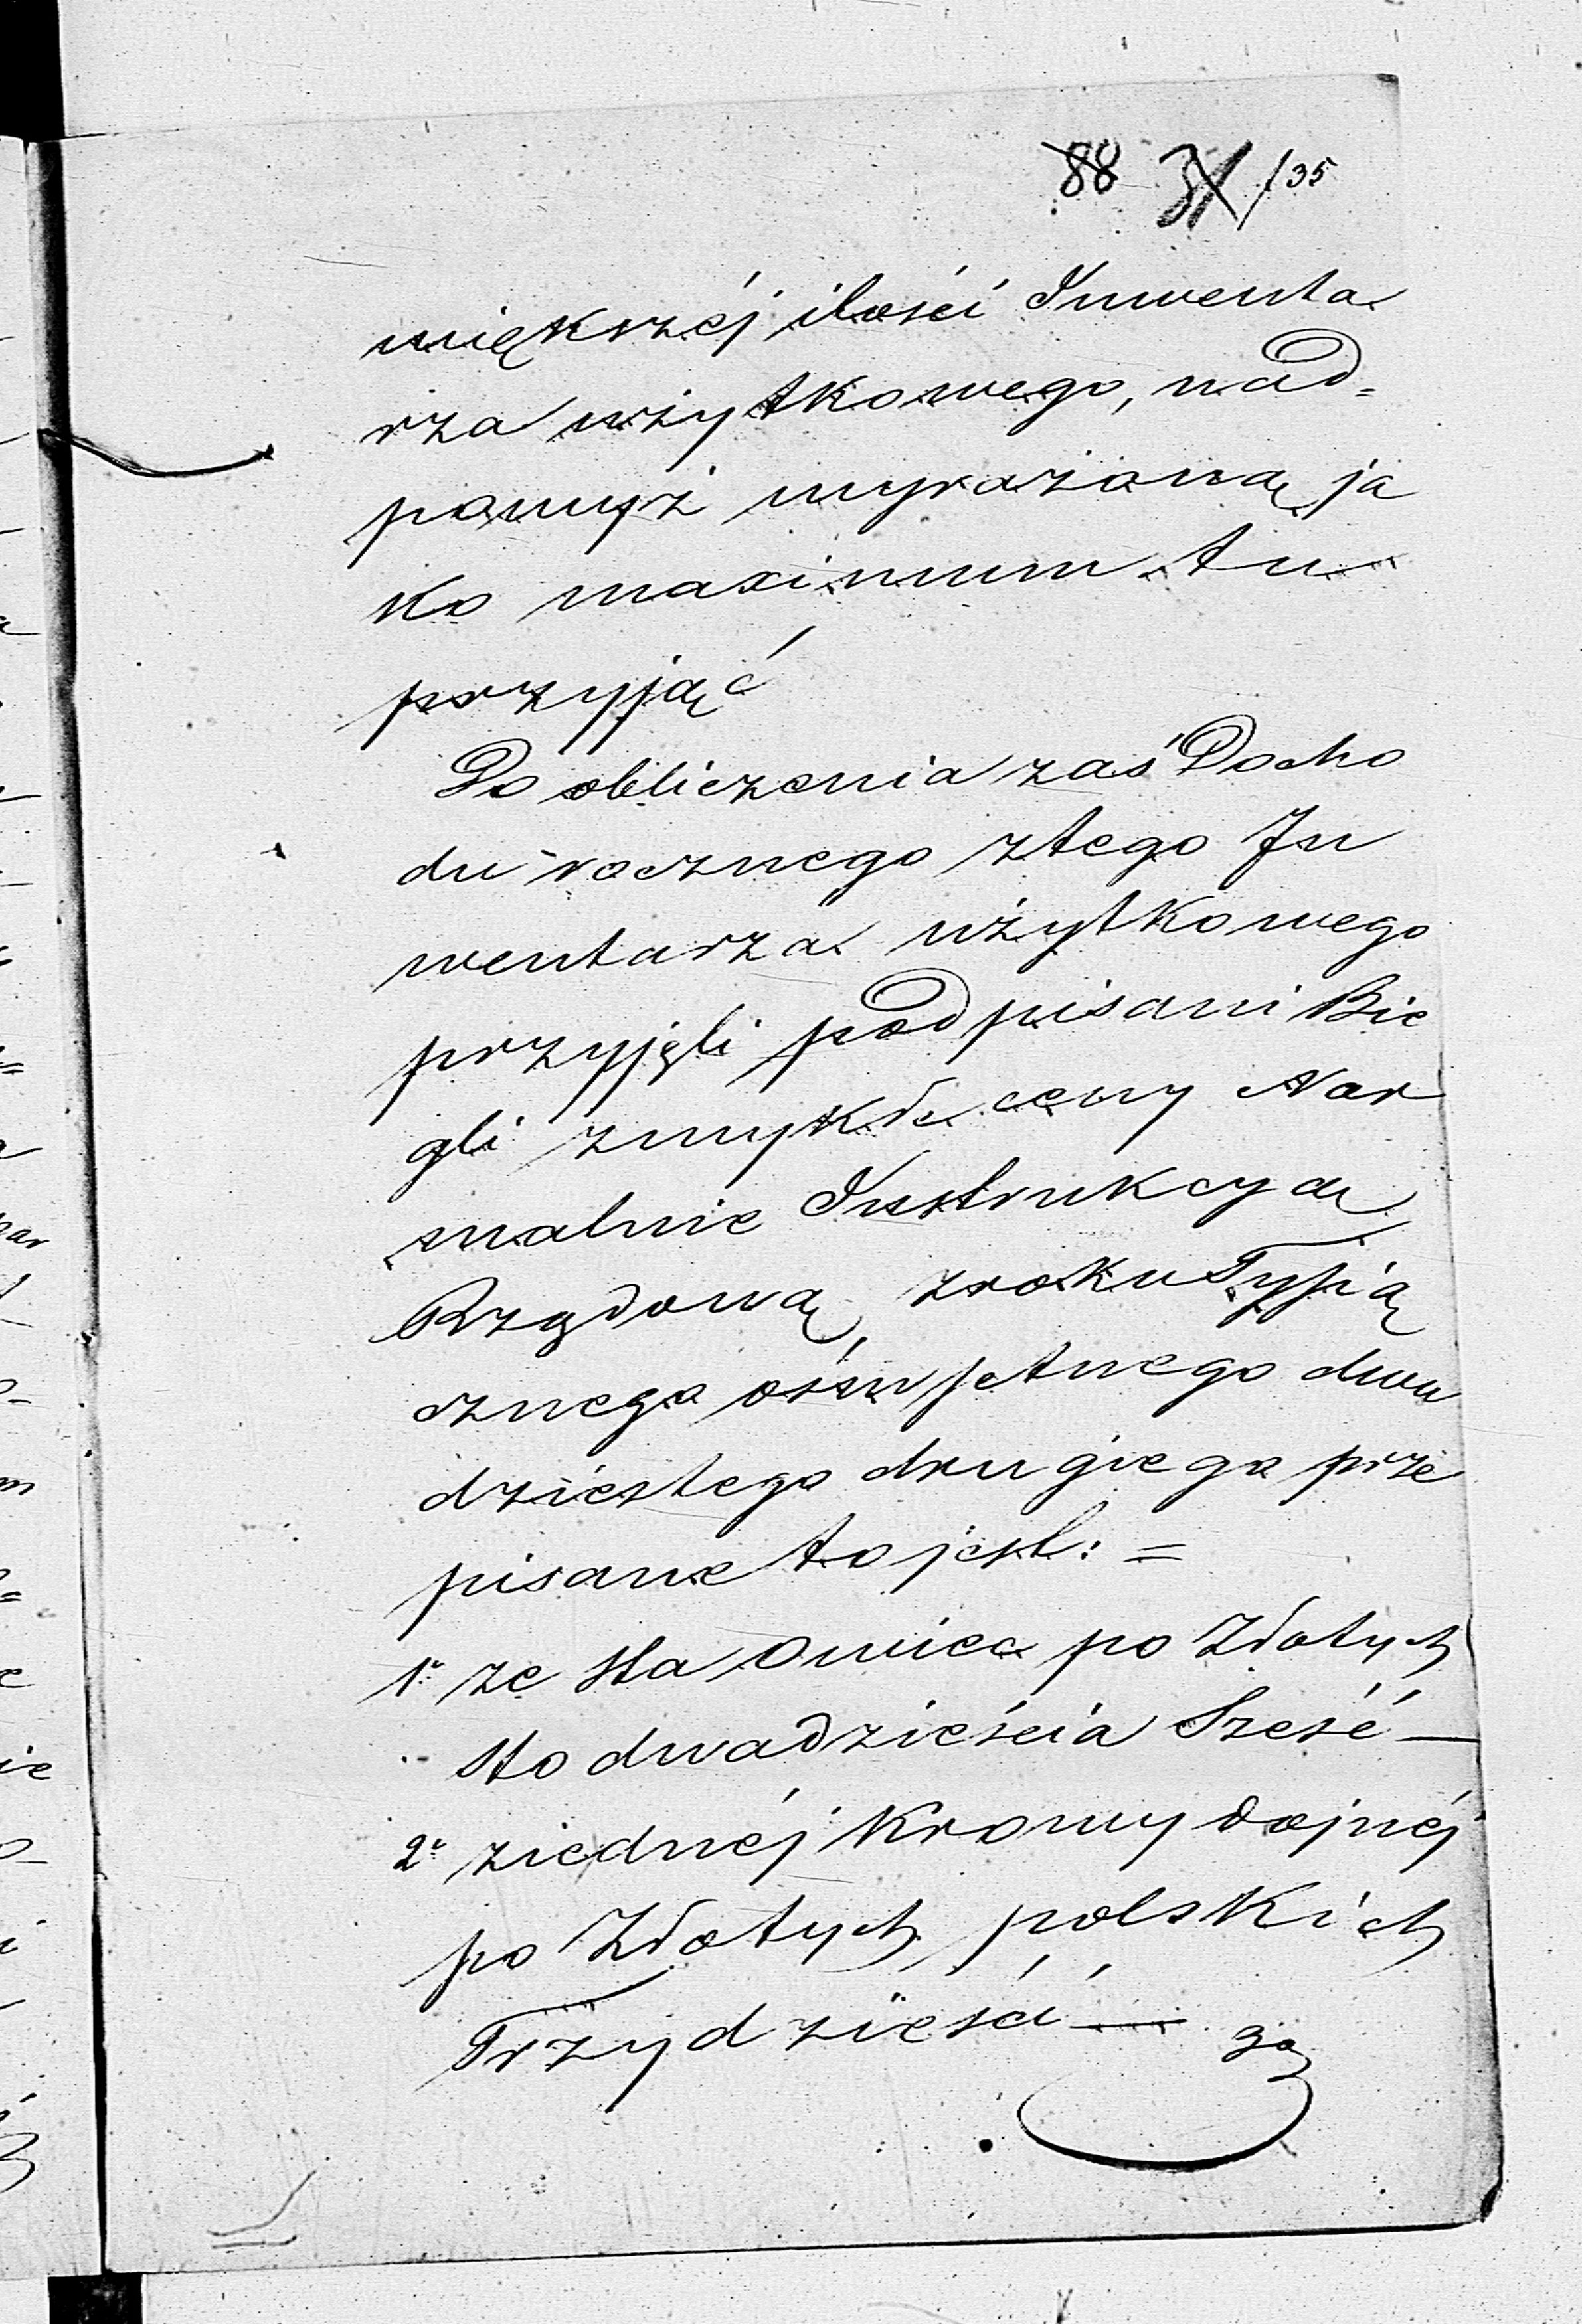 88 31/35
większéj ilości Inwenta
rza użytkowego, nad=
powyż wyrażoną ja
ko maximum tu
przyjąć
Do obliczenia zaś Docho
du rocznego ztego In
wentarza użytkowego
przyjęli podpisani Bie
gli zwykłe ceny Nor
malnie Instrukcyą
Rządową zroku Tysią
cznego ośmsetnego dwu
dziestego drugiego prze
pisane to jest: =
1° ze sta owiec po Złotych
sto dwadzieścia Sześć —
2° ziednéj Krowy dojnéj
po Złotych polskich
Trzydzieści —